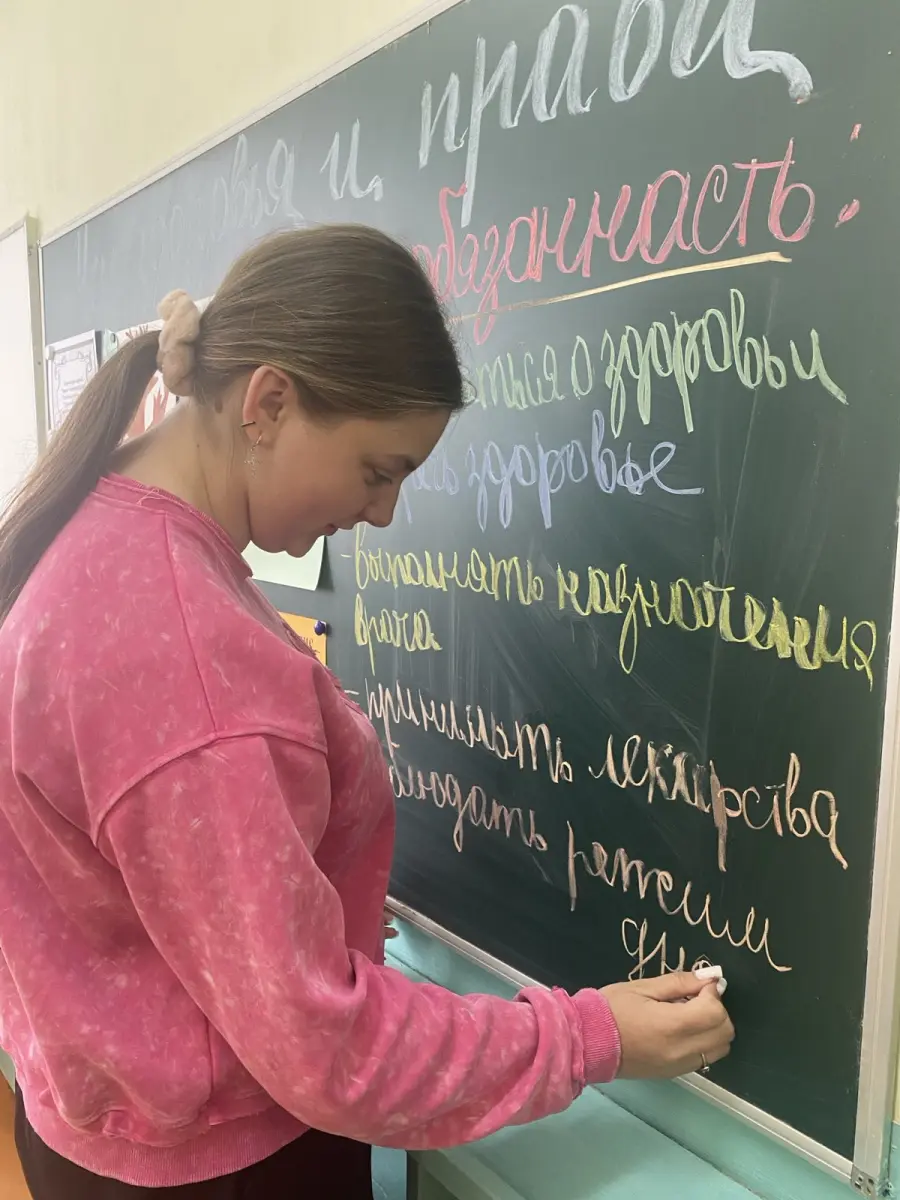 здоровья и
обязанность:
ться о здоровьи
здоровье
-выполнять назначения
врача
-принимать лекарства
блюдать режим
дн